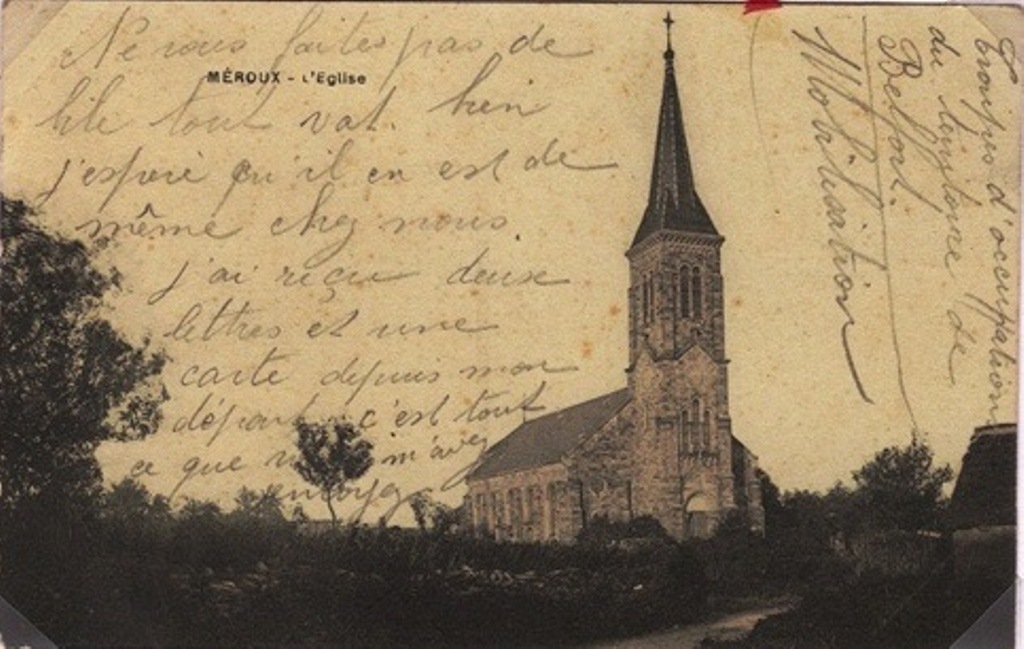 Ne vous faites pas de
MÉROUX - L'Eglise
bile tout vat. bien
j'espère qu'il en est de
même chez nous.
j'ai reçu deux
lettres et une
carte depuis mon
départ c'est tout
ce que m'avez
envoyé
Troupes d'occupation
du territoire de
Belfort.
Mobilisation